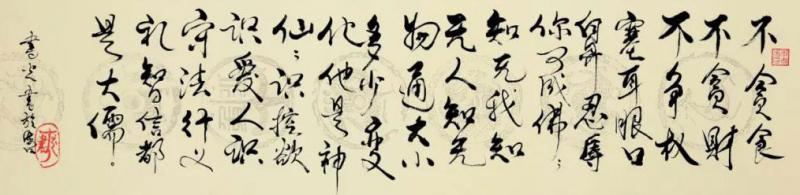 不貪食
不貪财
不争权
塞耳眼口
鼻忍辱
你可成佛〻
知无我知
无人知无
物通大小
多少变
化他是神
仙〻识控欲
识爱人识
守法行义
礼智信都
是大儒